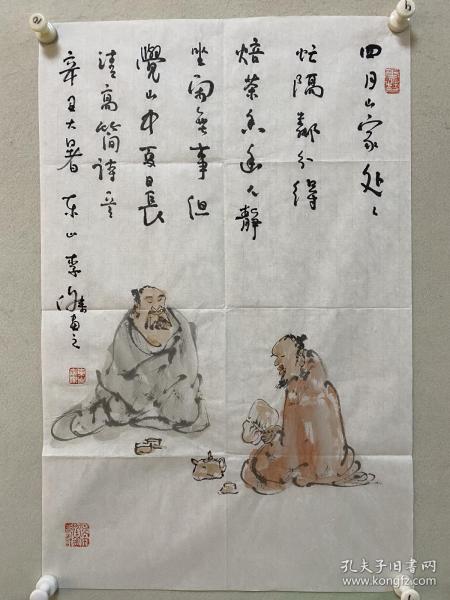 四月山家处々
忙隔鄰分得
焙茶香幽人靜
坐闲無事但
覺山中夏日長
清高簡詩意
辛丑大暑 东山李
画之
孔夫子旧书网
www.kongfz.com